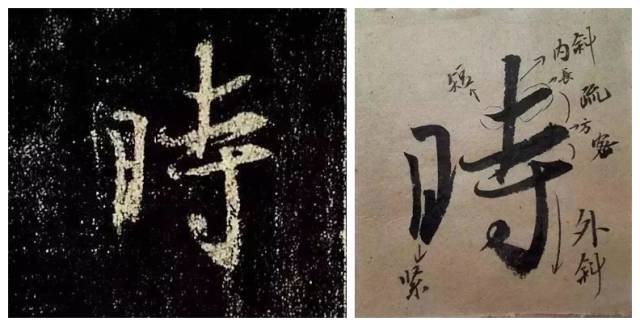 時
時
内斜
長
疏
方
密
外斜
短
紧